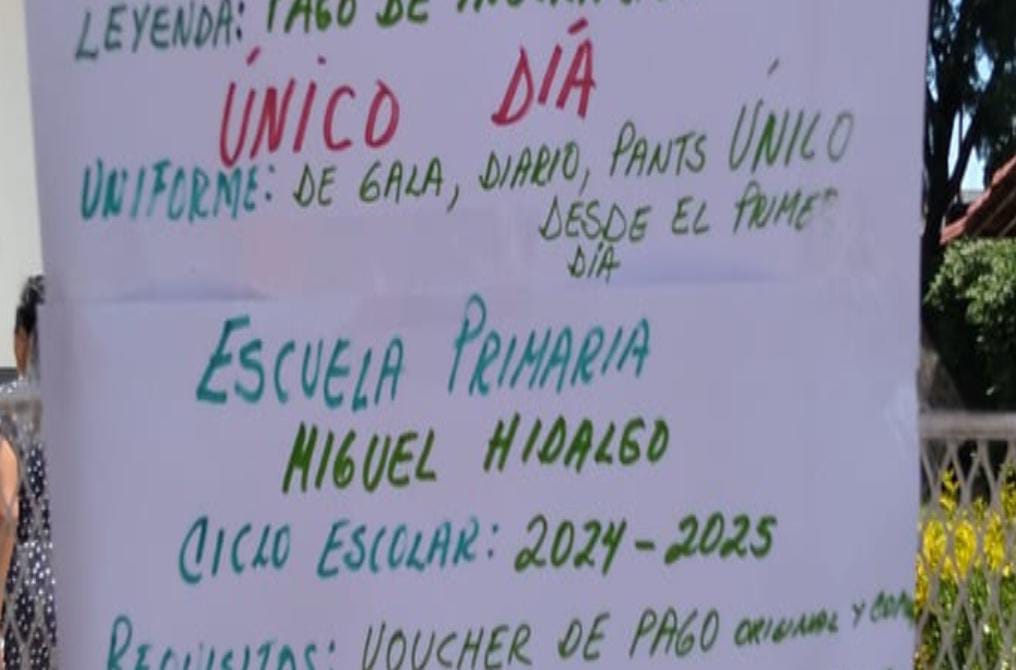 LEYENDA: PAGO DE
ÚNICO DÍA
UNIFORME: DE GALA, DIARIO, PANTS ÚNICO
DESDE EL PRIMER
DÍA
ESCUELA PRIMARIA
MIGUEL HIDALGO
CICLO ESCOLAR: 2024-2025
REQUISITOS: VOUCHER DE PAGO ORIGINAL Y